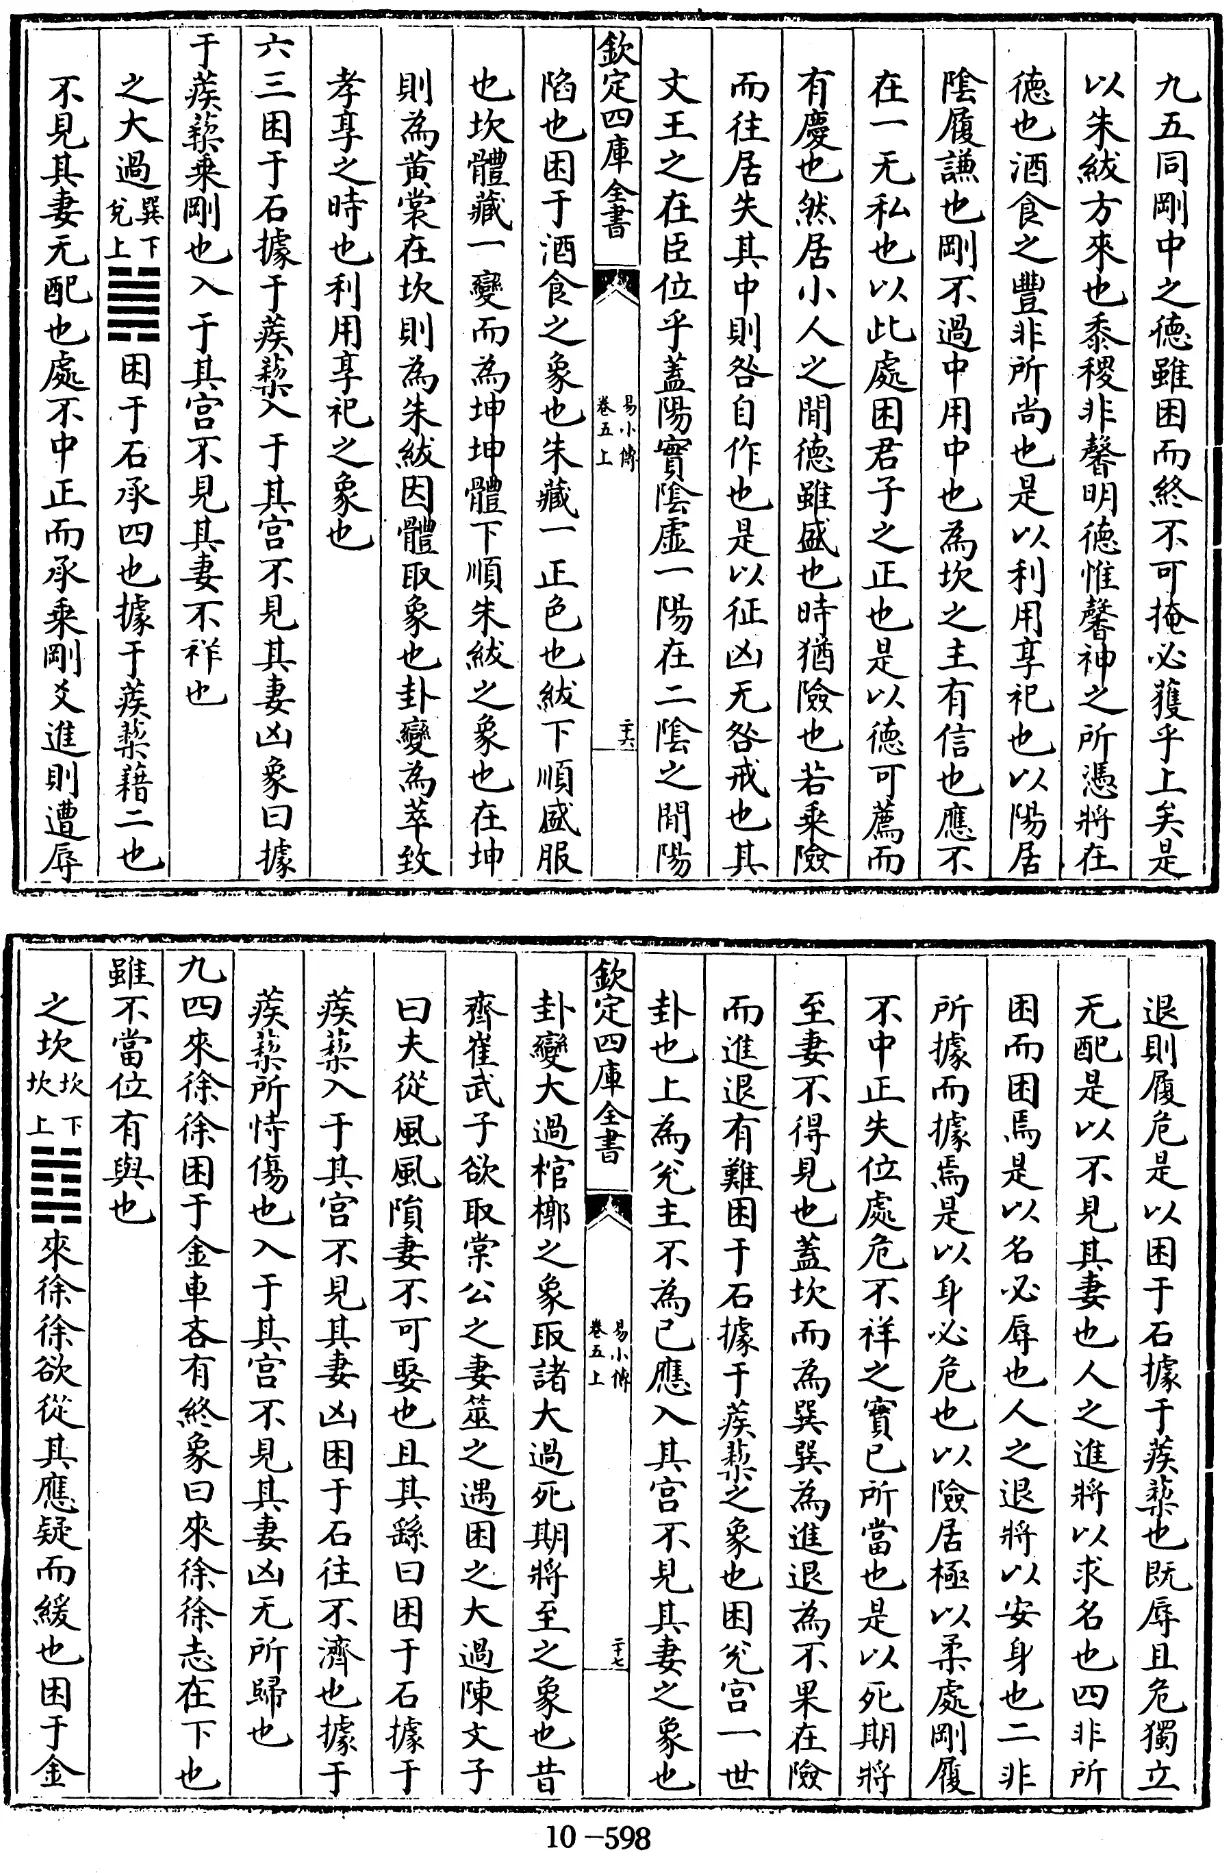 九五同剛中之德雖困而終不可掩必獲乎上矣是
以朱紱方來也黍稷非馨明德惟馨神之所憑將在
德也酒食之豐非所尚也是以利用享祀也以陽居
陰履謙也剛不過中用中也為坎之主有信也應不
在一无私也以此處困君子之正也是以德可薦而
有慶也然居小人之間德雖盛也時猶險也若乘險
而往居失其中則咎自作也是以征凶无咎戒也其
文王之在臣位乎蓋陽實陰虛一陽在二陰之間陽
欽定四庫全書 易小傳 卷五上 二十六
陷也困于酒食之象也朱藏一正色也紱下順盛服
也坎體藏一變而為坤坤體下順朱紱之象也在坤
則為黃裳在坎則為朱紱因體取象也卦變為萃致
孝享之時也利用享祀之象也
六三困于石據于蒺藜入于其宫不見其妻凶象曰據
于蒺藜乘剛也入于其宫不見其妻不祥也
之大過巽下兊上䷛困于石承四也據于蒺藜藉二也
不見其妻无配也處不中正而承乘剛爻進則遭辱
退則履危是以困于石據于蒺藜也既辱且危獨立
无配是以不見其妻也人之進將以求名也四非所
困而困焉是以名必辱也人之退將以安身也二非
所據而據焉是以身必危也以險居極以柔處剛履
不中正失位處危不祥之實已所當也是以死期將
至妻不得見也蓋坎而為巽巽為進退為不果在險
而進退有難困于石據于蒺藜之象也困兊宫一世
卦也上為兊主不為已應入其宫不見其妻之象也
欽定四庫全書 易小傳 卷五上 二十七
卦變大過棺槨之象取諸大過死期將至之象也昔
齊崔武子欲取棠公之妻筮之遇困之大過陳文子
曰夫從風風隕妻不可娶也且其繇曰困于石據于
蒺藜入于其宫不見其妻凶困于石往不濟也據于
蒺藜所恃傷也入于其宫不見其妻凶无所歸也
九四來徐徐困于金車吝有終象曰來徐徐志在下也
雖不當位有與也
之坎坎下坎上䷜來徐徐欲從其應疑而緩也困于金
10-598